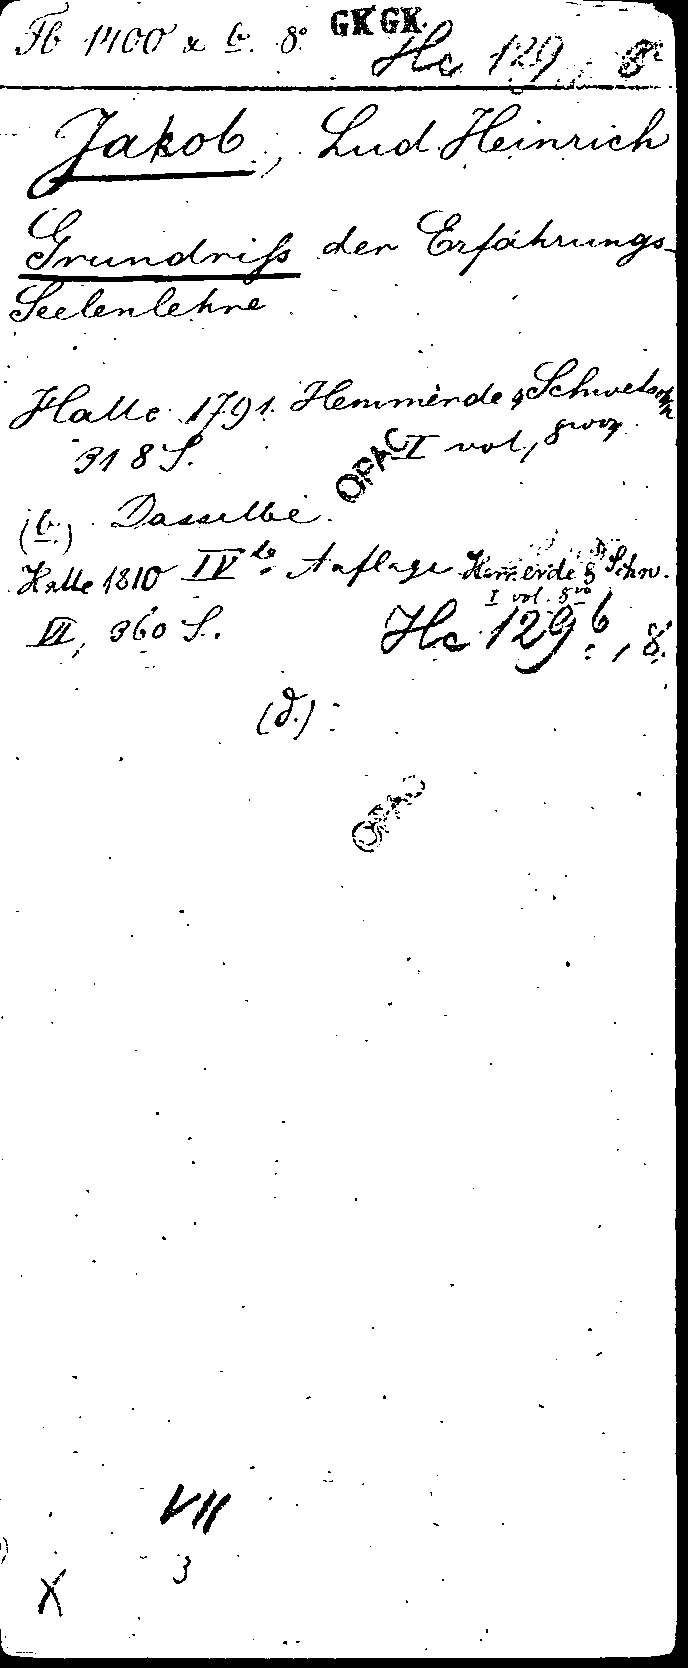 Fb 1400 x b. 8° GK GK. Hc 129, 8°
Jakob, Lud. Heinrich
Grundriſs der Erfahrungs-
Seelenlehre
Halle 1791. Hemmerde & Schwetschke
318 S. OPAC I vol, 8vo
(b.) Dasselbe.
Halle 1810 IV te Auflage Hemerde & Schw.
I vol. 8vo
VI, 360 S. Hc 129 b, 8.
(d.)
OPAC
VII
3
X